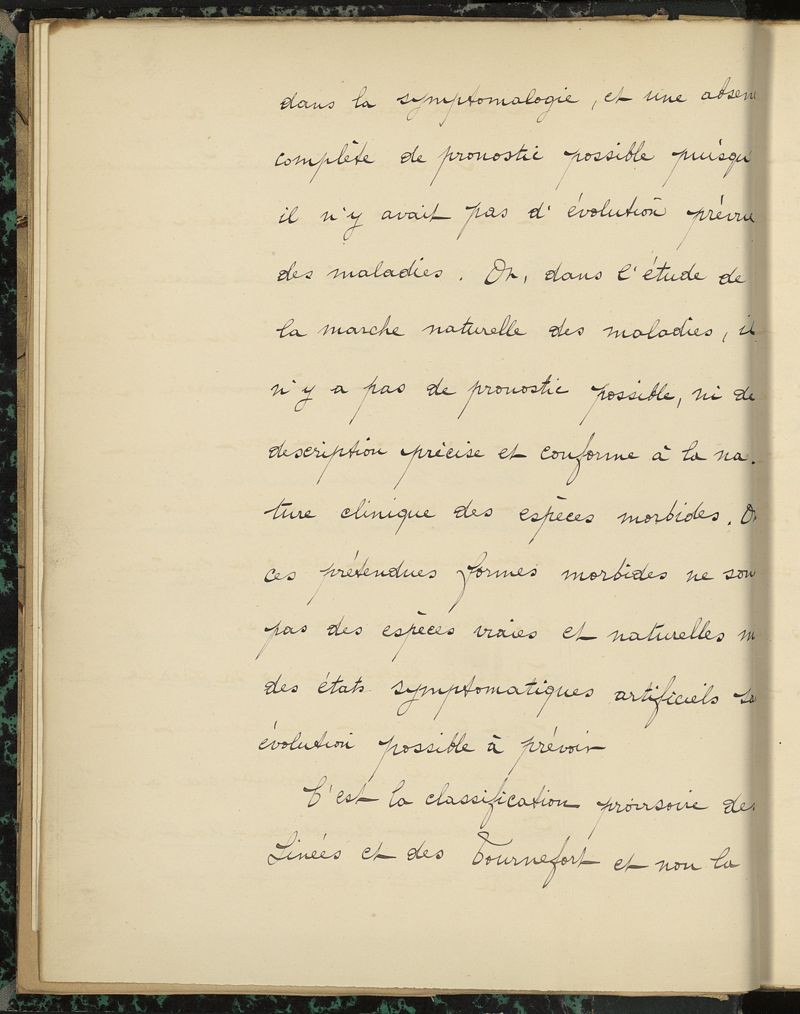 dans la symptomalogie, et une absen
complète de pronostic possible puisqu'
il n'y avait pas d'évolution prévue
des maladies. Or, dans l'étude de
la marche naturelle des maladies, il
n'y a pas de pronostic possible, ni de
description précise et conforme à la na.
ture clinique des espèces morbides. Or
ces prétendues formes morbides ne son
pas des espèces vraies et naturelles m
des états symptomatiques artificiels sa
évolution possible à prévoir
C'est la classification provisoire des
Linées et des Tournefort et non la